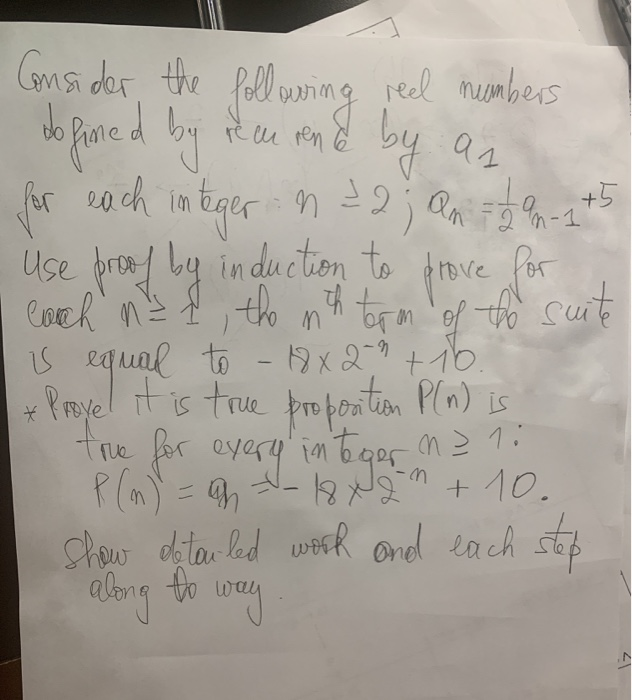 Consider the following reel numbers
defined by recurence by a₁
for each integer n ≥ 2; aₙ = ½ aₙ₋₁ + 5
Use proof by induction to prove for
each n ≥ 1, the nᵗʰ term of the suite
is equal to - 18 × 2⁻ⁿ + 10.
* Prove it is true proporition P(n) is
true for every integer n ≥ 1:
P(n) = aₙ = - 18 × 2⁻ⁿ + 10.
Show detailed work and each step
along to way.